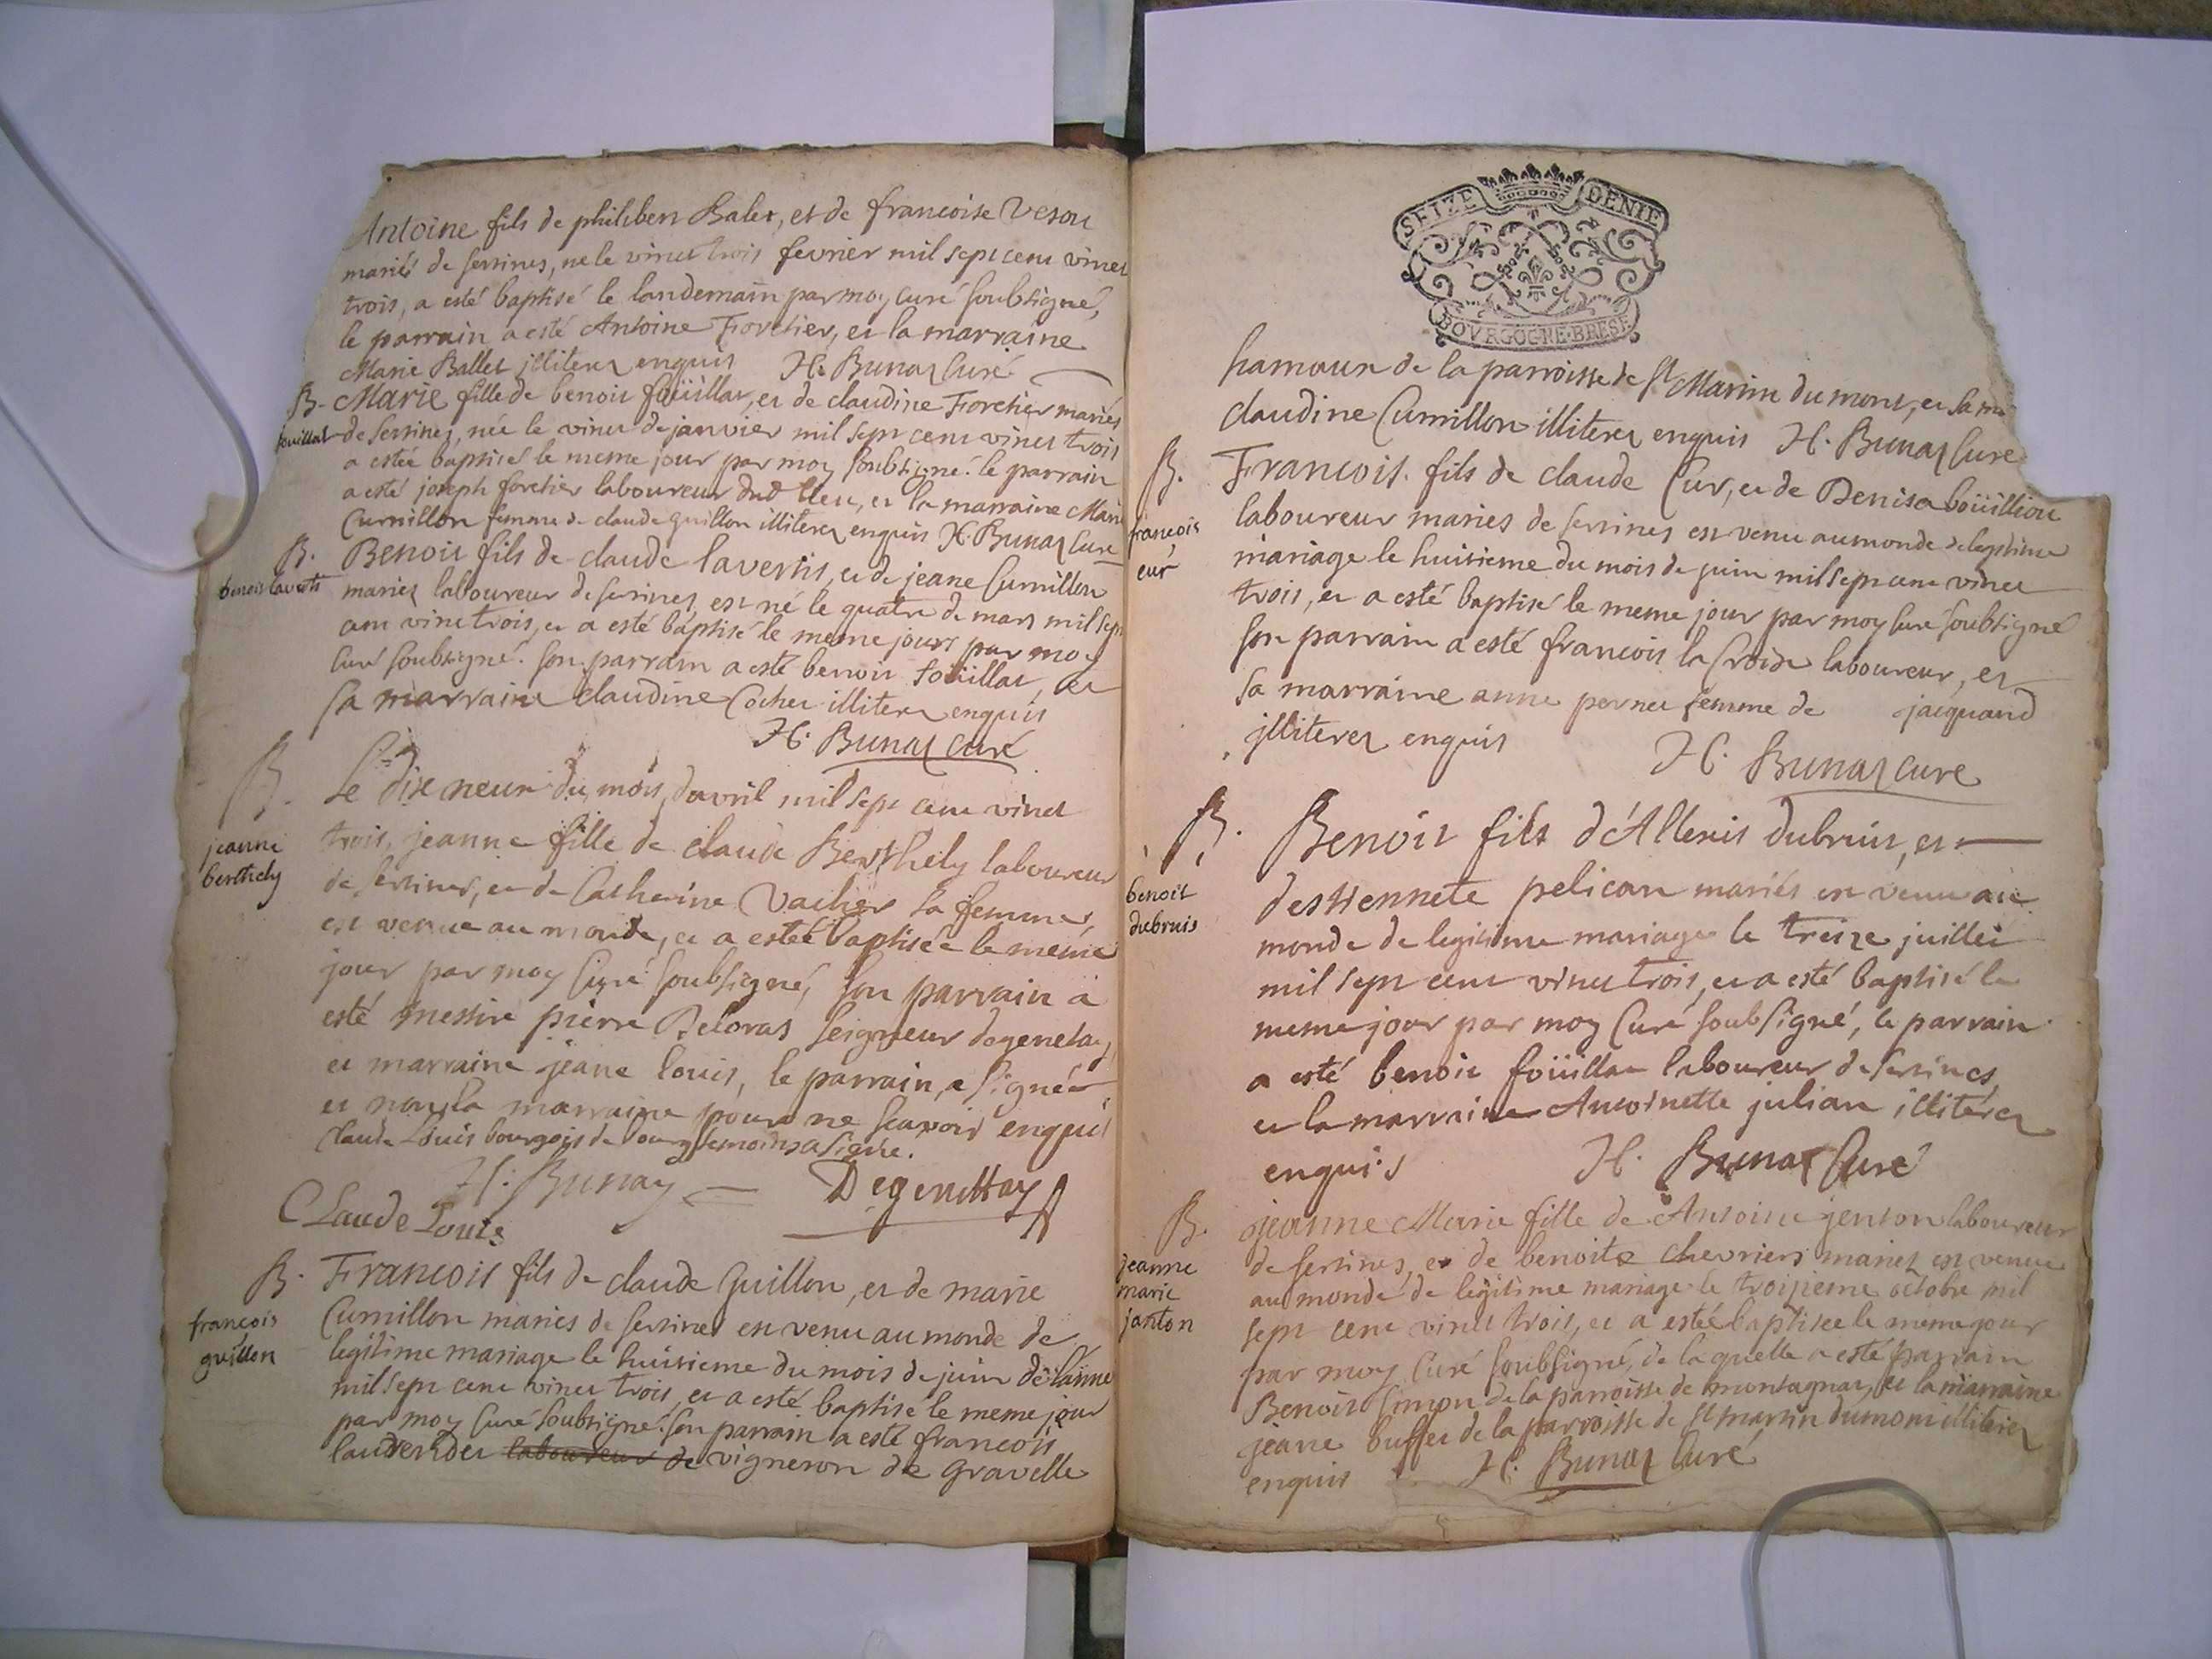 Antoine fils de philiben Balet, et de francoise Veson
mariés de serrines, ne le vinct trois fevrier mil sept cent vinct
trois, a esté baptisé le landemain par moy curé soubsigné,
le parrain a esté Antoine Foretier, et la marraine
Marie Ballet illiterez enquis H. Bunaz Curé
B. Marie fille de benoit foüillat, et de claudine Foretier mariés
fouillat de serrines, née le vinct de janvier mil sept cent vinct trois
a estée baptisée le meme jour par moy soubsigné. le parrain
a esté joseph foretier laboureur dud lieu, et la marraine Marie
Cumillon femme de claude guillon illiterez enquis H. Bunaz Curé
B. Benoit fils de claude lavertis, et de jeane Cumillon
benoit lavertis mariez laboureur de serrines, est né le quatre de mars mil sept
cent vinct trois, et a esté baptisé le meme jours par moy
Curé soubsigné. son parrain a esté benoit foüillat, et
sa marraine claudine Cochet illiterez enquis
H. Bunaz curé
B. Le dix neuf du mois d'avril mil sept cent vinct
jeanne
berthely
trois, jeanne fille de claude Berthely laboureur
de serrines, et de Catherine Vacher sa femme,
est venue au monde, et a estée baptisée le meme
jour par moy Curé soubsigné, son parrain a
esté messire pierre Deloras seigneur degenetay
et marraine jeane louis, le parrain, a signée
et non la marraine pour ne scavoir enquis
Claude Louis bourgois de bourg temoins a signé.
H. Bunaz Degenittay
CLaude Louis
B. Francois fils de claude guillon, et de marie
francois
guillon
Cumillon maries de serrines est venu au monde de
legitime mariage le huitieme du mois de juin de lanné
mil sept cent vinct trois, et a esté baptisé le meme jour
par moy Curé soubsigné. son parrain a esté francois
laboureur de vigneron de gravelle
SEIZE DENIE
BOVRGOGNE·BRESE
hamaux de la parroisse de St Martin du mont, et sa ma
claudine Cumillon illiterez enquis H. Bunaz Curé
B. Francois fils de claude Cur, et de Denise boüillion
francois
cur
laboureur maries de serrines est venu au monde de legitime
mariage le huitieme du mois de juin mil sept cent vinct
trois, et a esté baptisé le meme jour par moy Curé soubsigné
son parrain a esté francois la Croix laboureur, et
sa marraine anne pernet femme de jacquand
illiterez enquis H. Bunaz curé
B. Benoit fils d'Allexis dubruis, et
benoit
dubruis
destiennete pelican mariés est venu au
monde de legitime mariage le treize juillet
mil sept cent vinct trois, et a esté baptisé le
meme jour par moy Curé soubsigné, le parrain
a esté benoit foüillat laboureur de serrines,
et la marraine Antoinette julian illiterez
enquis H. Bunaz Curé
B. jeanne Marie fille de Antoine jenton laboureur
jeanne
marie
janton
de serrines, et de benoite chevriers mariez est venue
au monde de legitime mariage le troisieme octobre mil
sept cent vinct trois, et a estée baptisée le meme jour
par moy Curé soubsigné, de laquelle a esté parrain
Benoit simon de la parroisse de montagnat, et la marraine
jeane buffet de la parroisse de St martin du mont illiterez
enquis H. Bunaz Curé